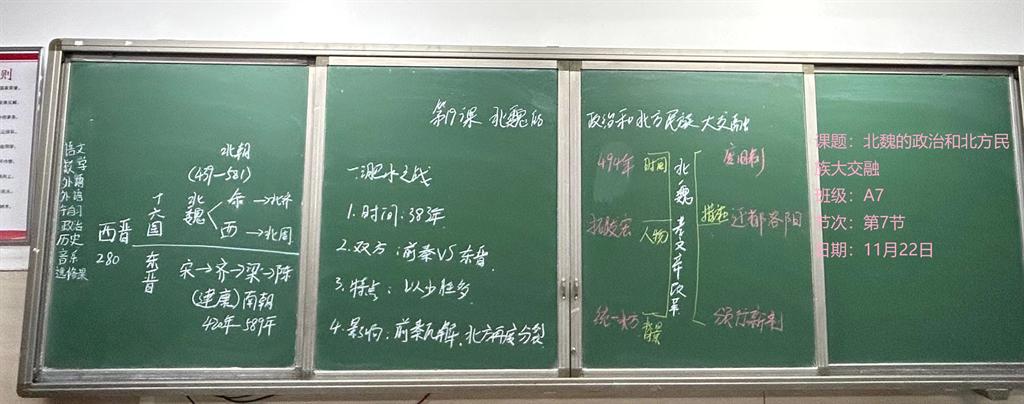 第19课 北魏的政治和北方民族大交融
语文
数学
外语
外语
自习
政治
历史
音乐
选修课
北朝
(439—581)
十六国
北魏
东→北齐
西→北周
西晋
280
东晋
宋→齐→梁→陈
(建康)南朝
420年 589年
一.淝水之战
1.时间:383年
2.双方:前秦VS东晋.
3.特点:以少胜多
4.影响:前秦瓦解.北方再度分裂
494年 时间
拓跋宏 人物
统一北方 背景
北魏孝文帝改革
措施
迁都洛阳
课题：北魏的政治和北方民
族大交融
班级：A7
节次：第7节
日期：11月22日
则